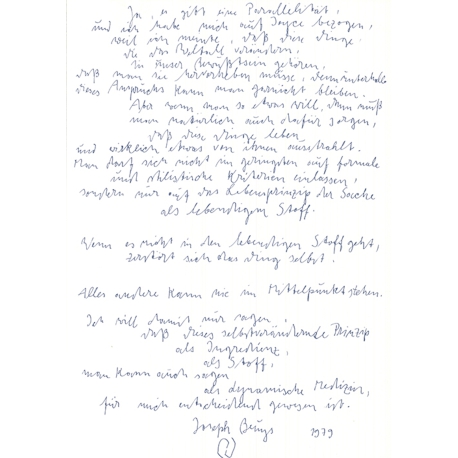 Ja, es gibt eine Parallelität,
und ich habe mich auf Joyce bezogen,
weil ich meinte, daß diese Dinge
die das Weltall verändern,
in dieser Bewußtsein gehören,
daß man sie hervorheben müsse, denn unterhalb
dieses Anspruchs kann man garnicht bleiben.
Aber wenn man so etwas will, dann muß
man natürlich auch dafür sorgen,
daß diese Dinge leben
und wirklich etwas von ihnen ausstrahlt.
Man darf sich nicht im geringsten auf formale
und stilistische Kriterien einlassen,
sondern nur auf das Lebensprinzip der Sache
als lebendigem Stoff.
Wenn es nicht in den lebendigen Stoff geht,
zerstört sich das Ding selbst.
Alles andere kann nie im Mittelpunkt stehen.
Ich will damit nur sagen,
daß dieses selbstverändernde Prinzip
als Ingredienz,
als Stoff,
man kann auch sagen
als dynamische Medizin,
für mich entscheidend gewesen ist.
Joseph Beuys 1979
(?)